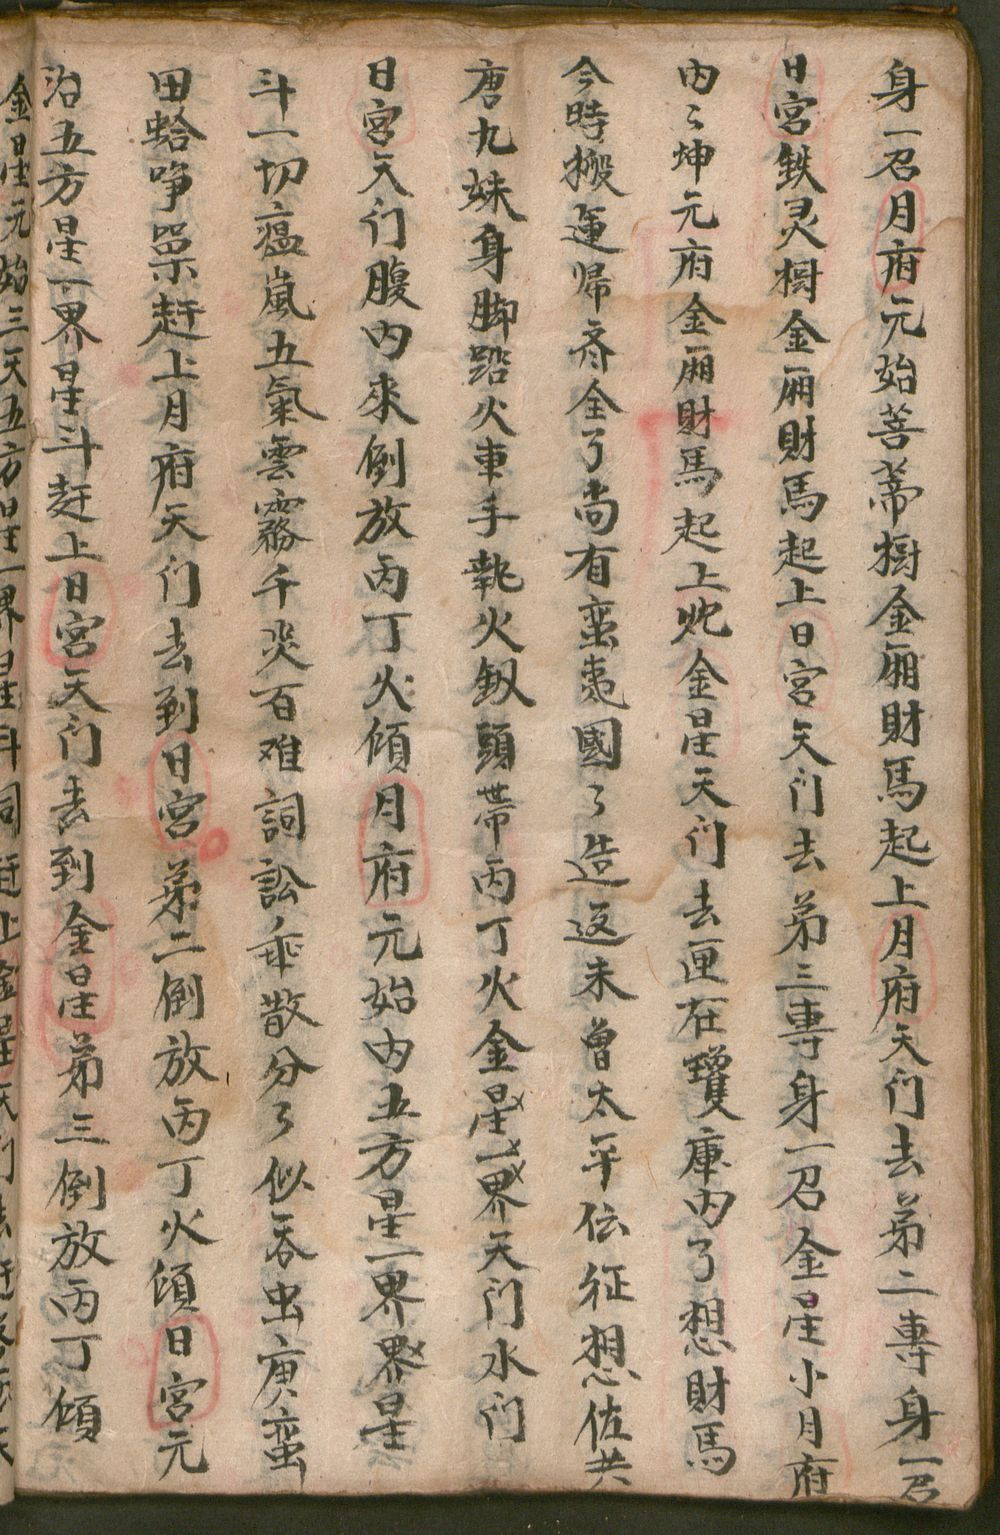 身一召月府元始菩蒂樹金廂財馬起上月府天门去弟二專身一召
日宮鉄灵樹金廂財馬起上日宮天门去弟三專身一召金星小月府
内〻坤元府金廂財馬起上兠金星天门去匣在雙庫内了想財馬
今時搬運帰齐全了尚有蛮夷國了造返未曾太平伝征想佐共
唐九妹身脚踏火車手執火釼頭帯丙丁火金星一界天门水门
日宮天门腹内來倒放丙丁火傾月府元始内五方星一界界星
斗一切瘟嵐五氣雲霧千災百难詞訟乖散分了似吞虫庚蛮
田蛤争噐赶上月府天门去到日宮弟二倒放丙丁火傾日宮元
治五方星一界星斗赶上日宮天门去到金星弟三倒放丙丁傾
金星元始三天五方星一界星斗同赶上金星天门去